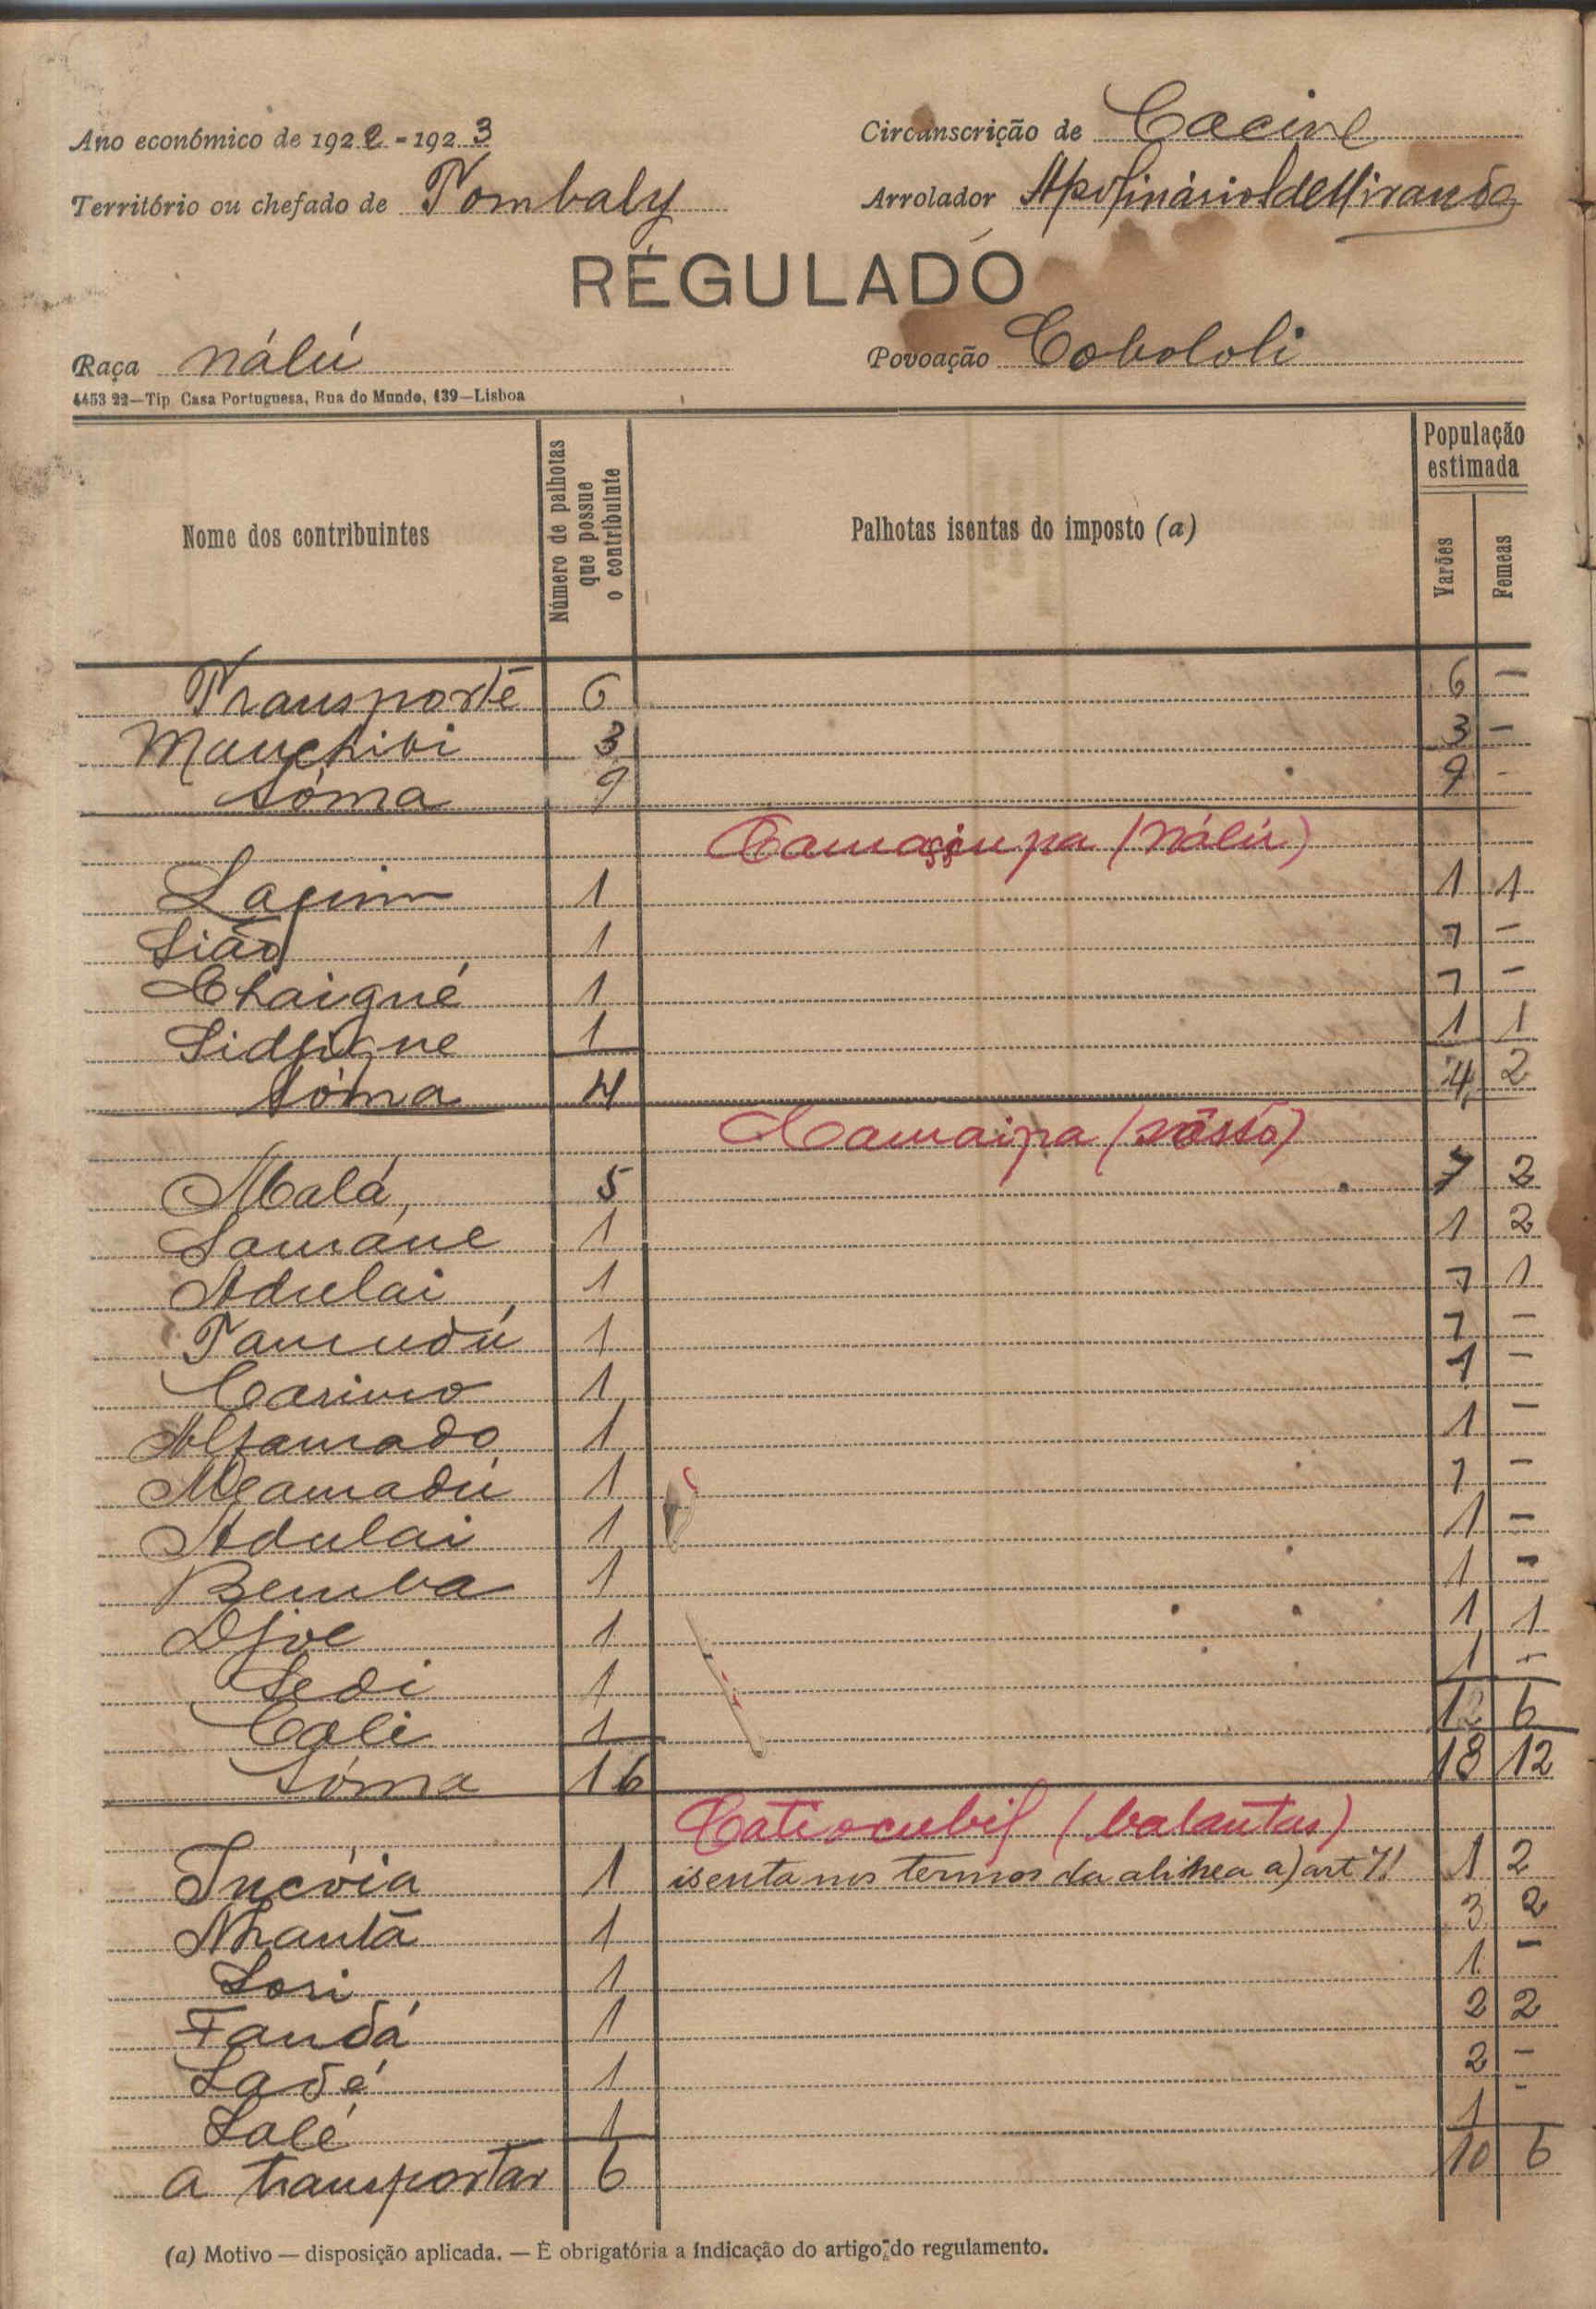 Ano económico de 1922-1923
Circunscrição de Cacine
Território ou chefado de Tombaly
Arrolador Apolinário de Miranda
RÉGULADO
Raça Nálú
Povoação Cobololi
4453 22—Tip. Casa Portuguesa, Rua do Mundo, 139—Lisboa
Nome dos contribuintes
Número de palhotas que possue o contribuinte
Palhotas isentas do imposto (a)
População estimada
Varões
Femeas
Transporte 6 6 —
Manchibi 3 3 —
Sóma 9 9 -
(Nálú)
1 1 1
Sião 1 1 —
Chaigné 1 1 —
1 1 1
Sóma 4 4 2
Camaipa (sôssó)
Malá 5 7 2
Samáne 1 1 2
Adulai 1 1 1
Tamudú 1 1 —
Carimo 1 1 —
Alfamado 1 1 —
Meamadú 1 1 —
Adulai 1 1 —
Bemba 1 1 —
Djoe 1 1 1
Sedi 1 1 —
Cali 1 12 6
Sóma 16 18 12
Catiocubif (balantas)
Incóia 1 isenta nos termos da alinea a) art 7! 1 2
Nhantã 1 3 2
Sori 1 1 —
Fandá 1 2 2
Ladé 1 2 —
Salé 1 1 -
a transportar 6 10 6
(a) Motivo — disposição aplicada. — É obrigatória a indicação do artigo do regulamento.